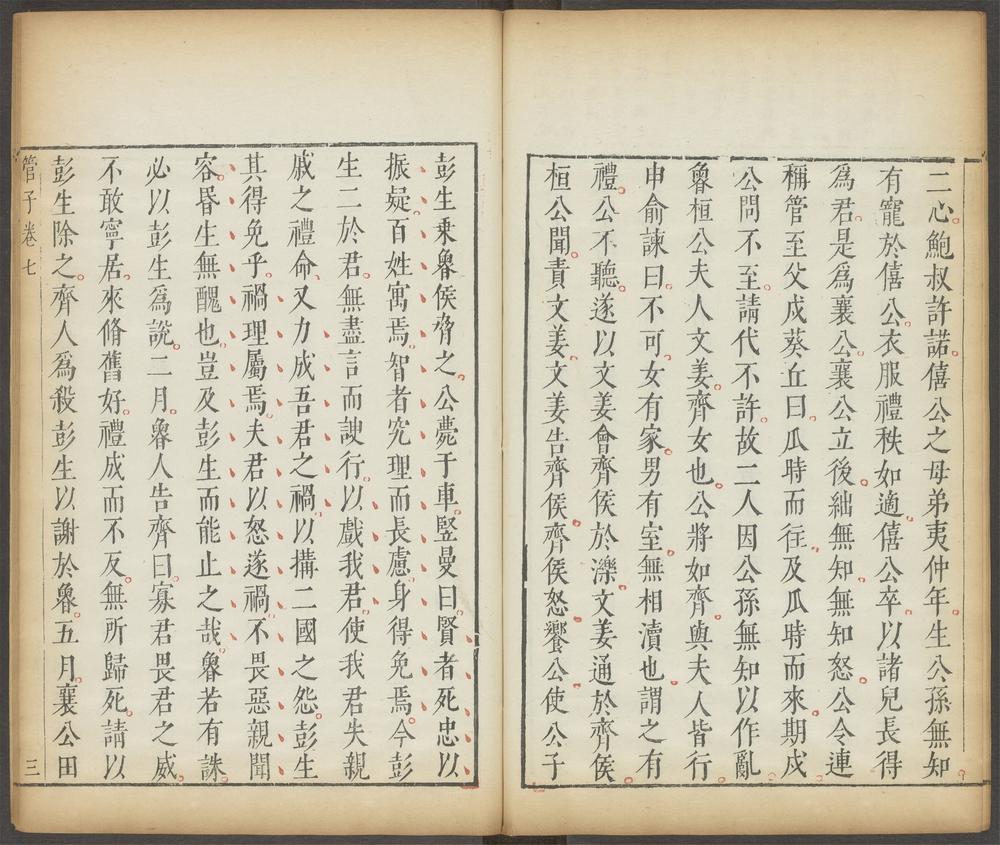 二心鮑叔許諾僖公之母弟夷仲年生公孫無知
有寵於僖公衣服禮秩如適僖公卒以諸兒長得
爲君是爲襄公襄公立後絀無知無知怒公令連
稱管至父戍葵丘曰瓜時而往及瓜時而來期戍
公問不至請代不許故二人因公孫無知以作亂
魯桓公夫人文姜齊女也公將如齊與夫人皆行
申俞諫曰不可女有家男有室無相瀆也謂之有
禮公不聽遂以文姜會齊侯於濼文姜通於齊侯
桓公聞責文姜文姜告齊侯齊侯怒饗公使公子
彭生乗魯侯脅之公薨于車竪曼曰賢者死忠以
振疑百姓寓焉智者究理而長慮身得免焉今彭
生二於君無盡言而諛行以戲我君使我君失親
戚之禮命又力成吾君之禍以搆二國之怨彭生
其得免乎禍理屬焉夫君以怒遂禍不畏惡親聞
容昏生無醜也豈及彭生而能止之哉魯若有誅
必以彭生爲說二月魯人告齊曰寡君畏君之威
不敢寧居來脩舊好禮成而不反無所歸死請以
彭生除之齊人爲殺彭生以謝於魯五月襄公田
管子卷七
三